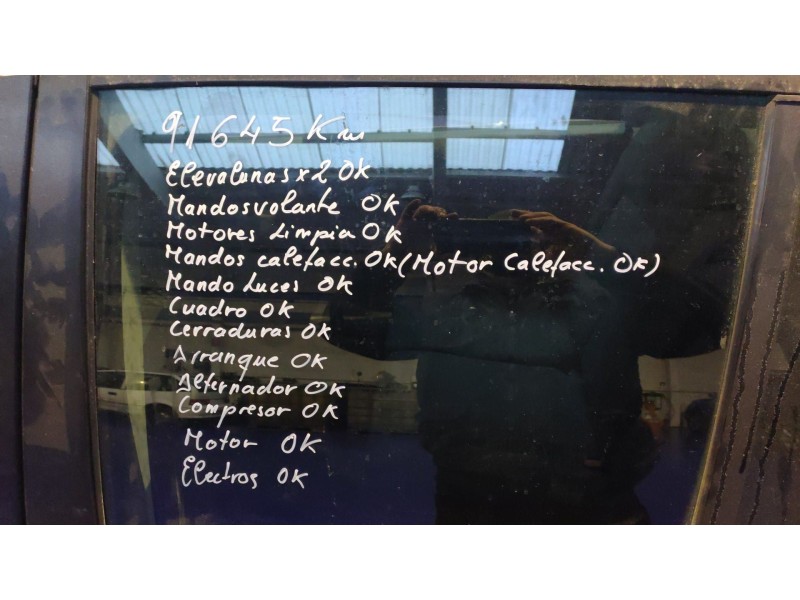 91645 Km
Elevalunas x2 OK
Mandos volante OK
Motores Limpia OK
Mandos calefacc. OK (Motor Calefacc. OK)
Mando Luces OK
Cuadro OK
Cerraduras OK
Arranque OK
Alternador OK
Compresor OK
Motor OK
Electros OK